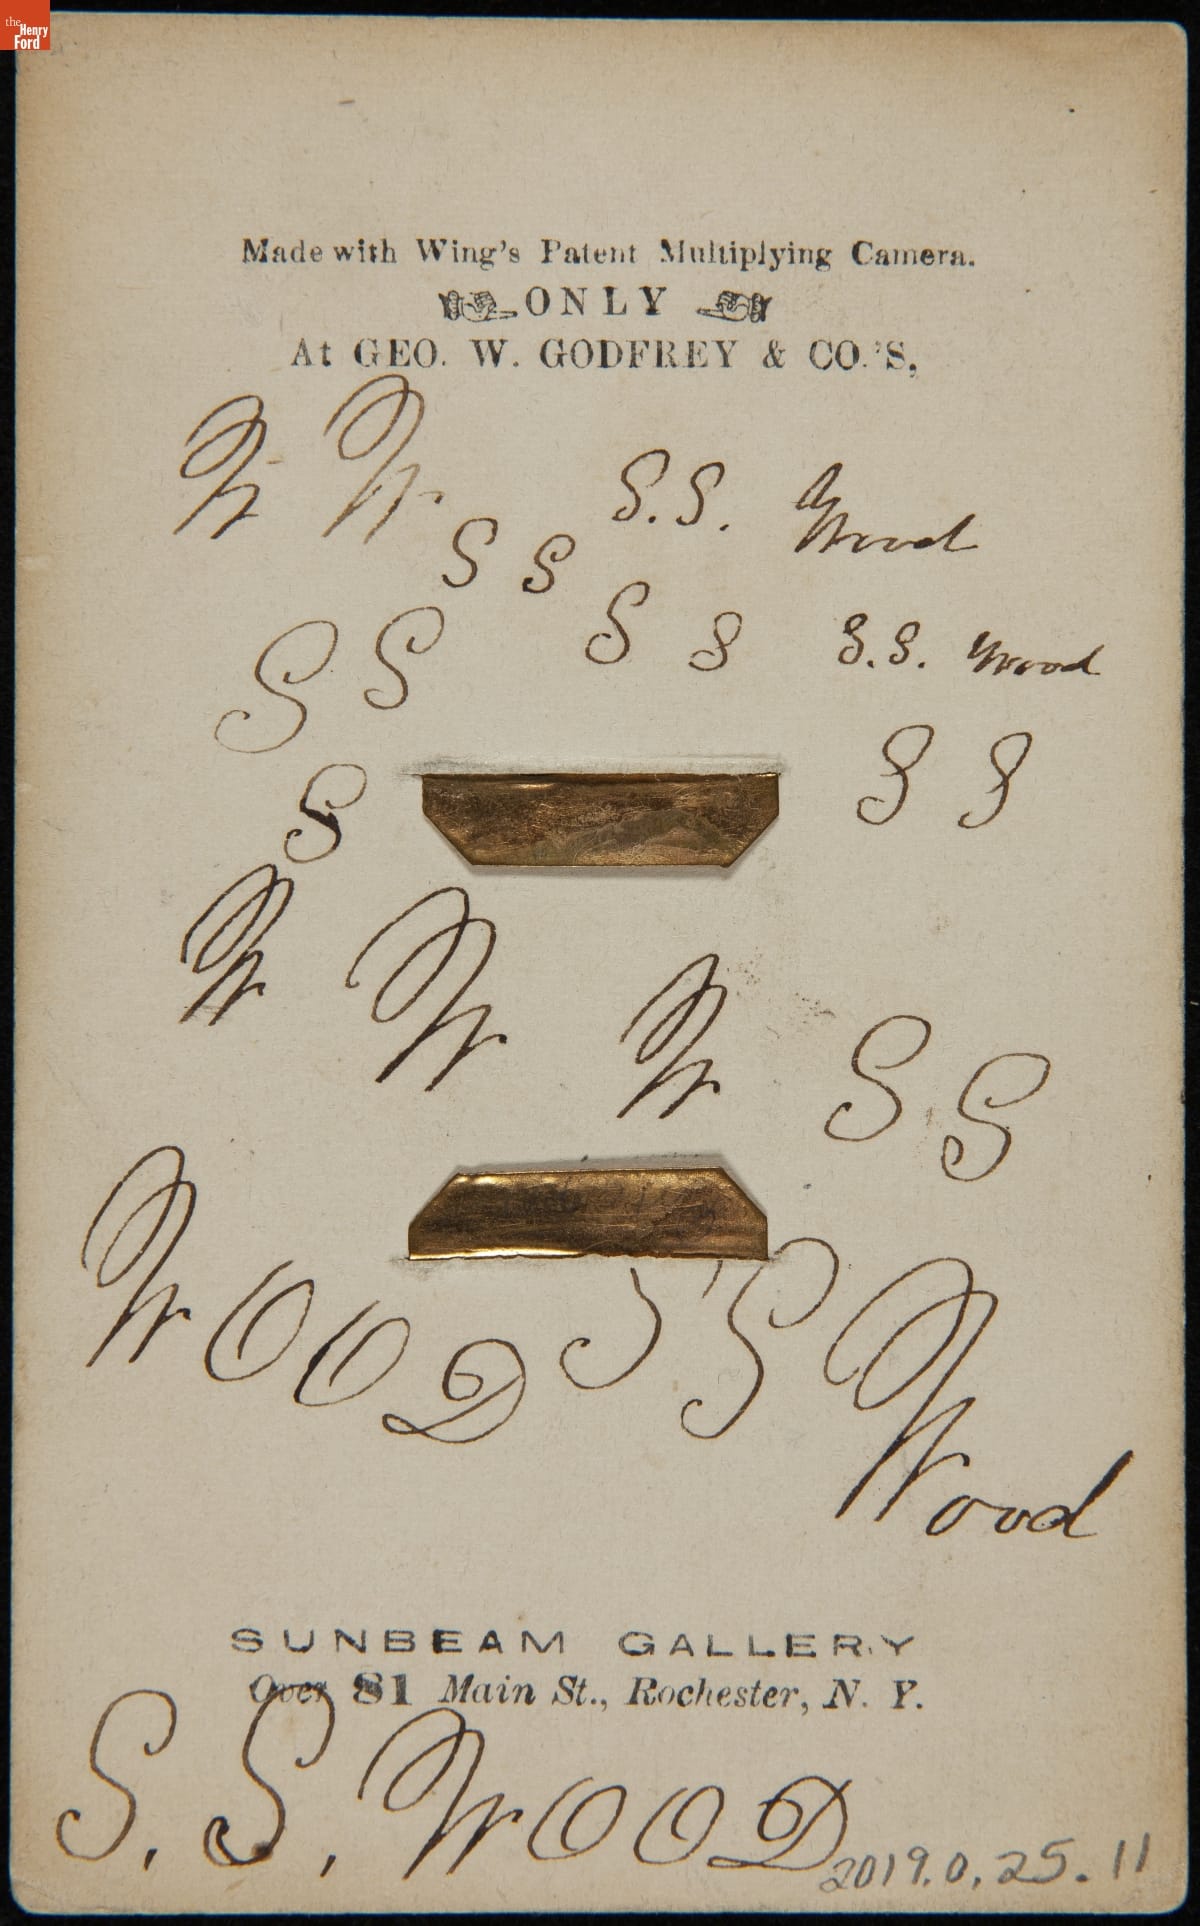 the
Henry
Ford
Made with Wing's Patent Multiplying Camera.
ONLY
At GEO. W. GODFREY & CO.'S,
W W
S.S. Wood
S S
S S
S.S. Wood
S S
S
S S
W W W
S S
WOOD
SS Wood
SUNBEAM GALLERY
Over 81 Main St., Rochester, N. Y.
S. S. WOOD
2019.0.25.11